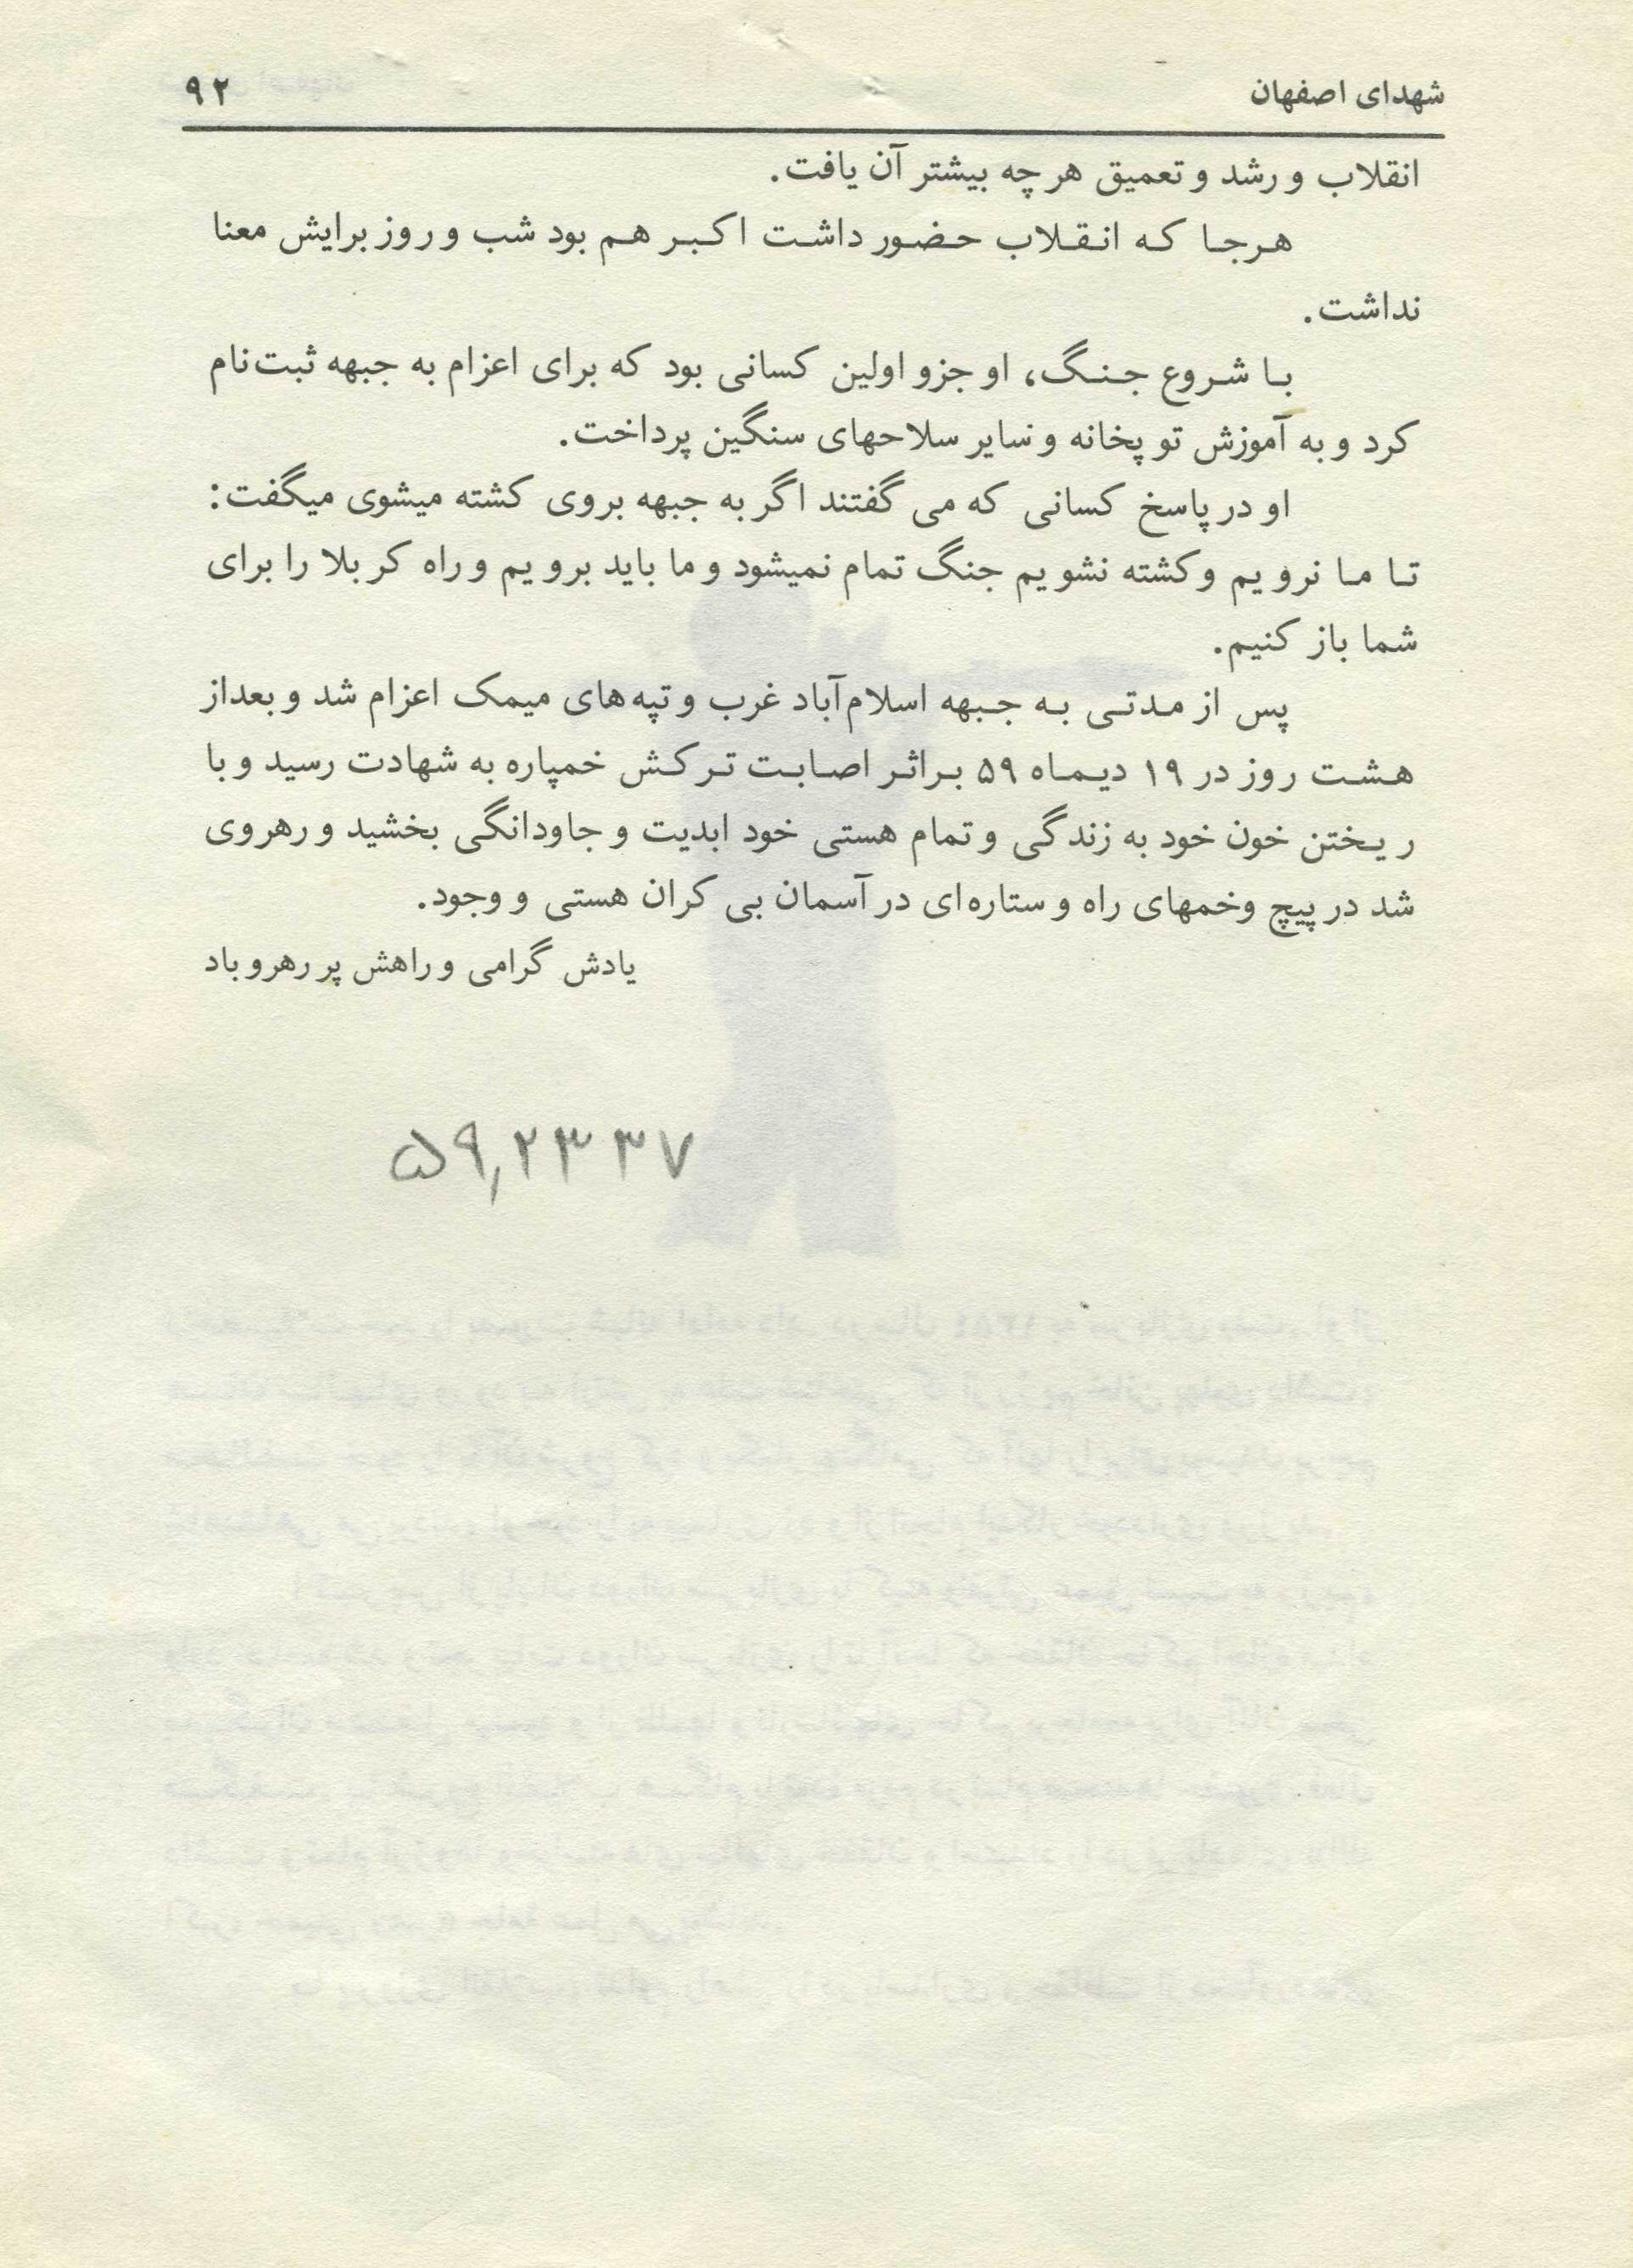 شهدای اصفهان ۹۲
انقلاب و رشد و تعمیق هر چه بیشتر آن یافت.
هرجا که انقلاب حضور داشت اکبر هم بود شب و روز برایش معنا
نداشت.
با شروع جنگ، او جزو اولین کسانی بود که برای اعزام به جبهه ثبت‌نام
کرد و به آموزش توپخانه و سایر سلاحهای سنگین پرداخت.
او در پاسخ کسانی که می گفتند اگر به جبهه بروی کشته میشوی میگفت:
تا ما نرویم و کشته نشویم جنگ تمام نمیشود و ما باید برویم و راه کربلا را برای
شما باز کنیم.
پس از مدتی به جبهه اسلام‌آباد غرب و تپه‌های میمک اعزام شد و بعداز
هشت روز در ۱۹ دیماه ۵۹ براثر اصابت ترکش خمپاره به شهادت رسید و با
ریختن خون خود به زندگی و تمام هستی خود ابدیت و جاودانگی بخشید و رهروی
شد در پیچ وخمهای راه و ستاره‌ای در آسمان بی کران هستی و وجود.
یادش گرامی و راهش پر رهرو باد
۵۹,۲۳۳۷